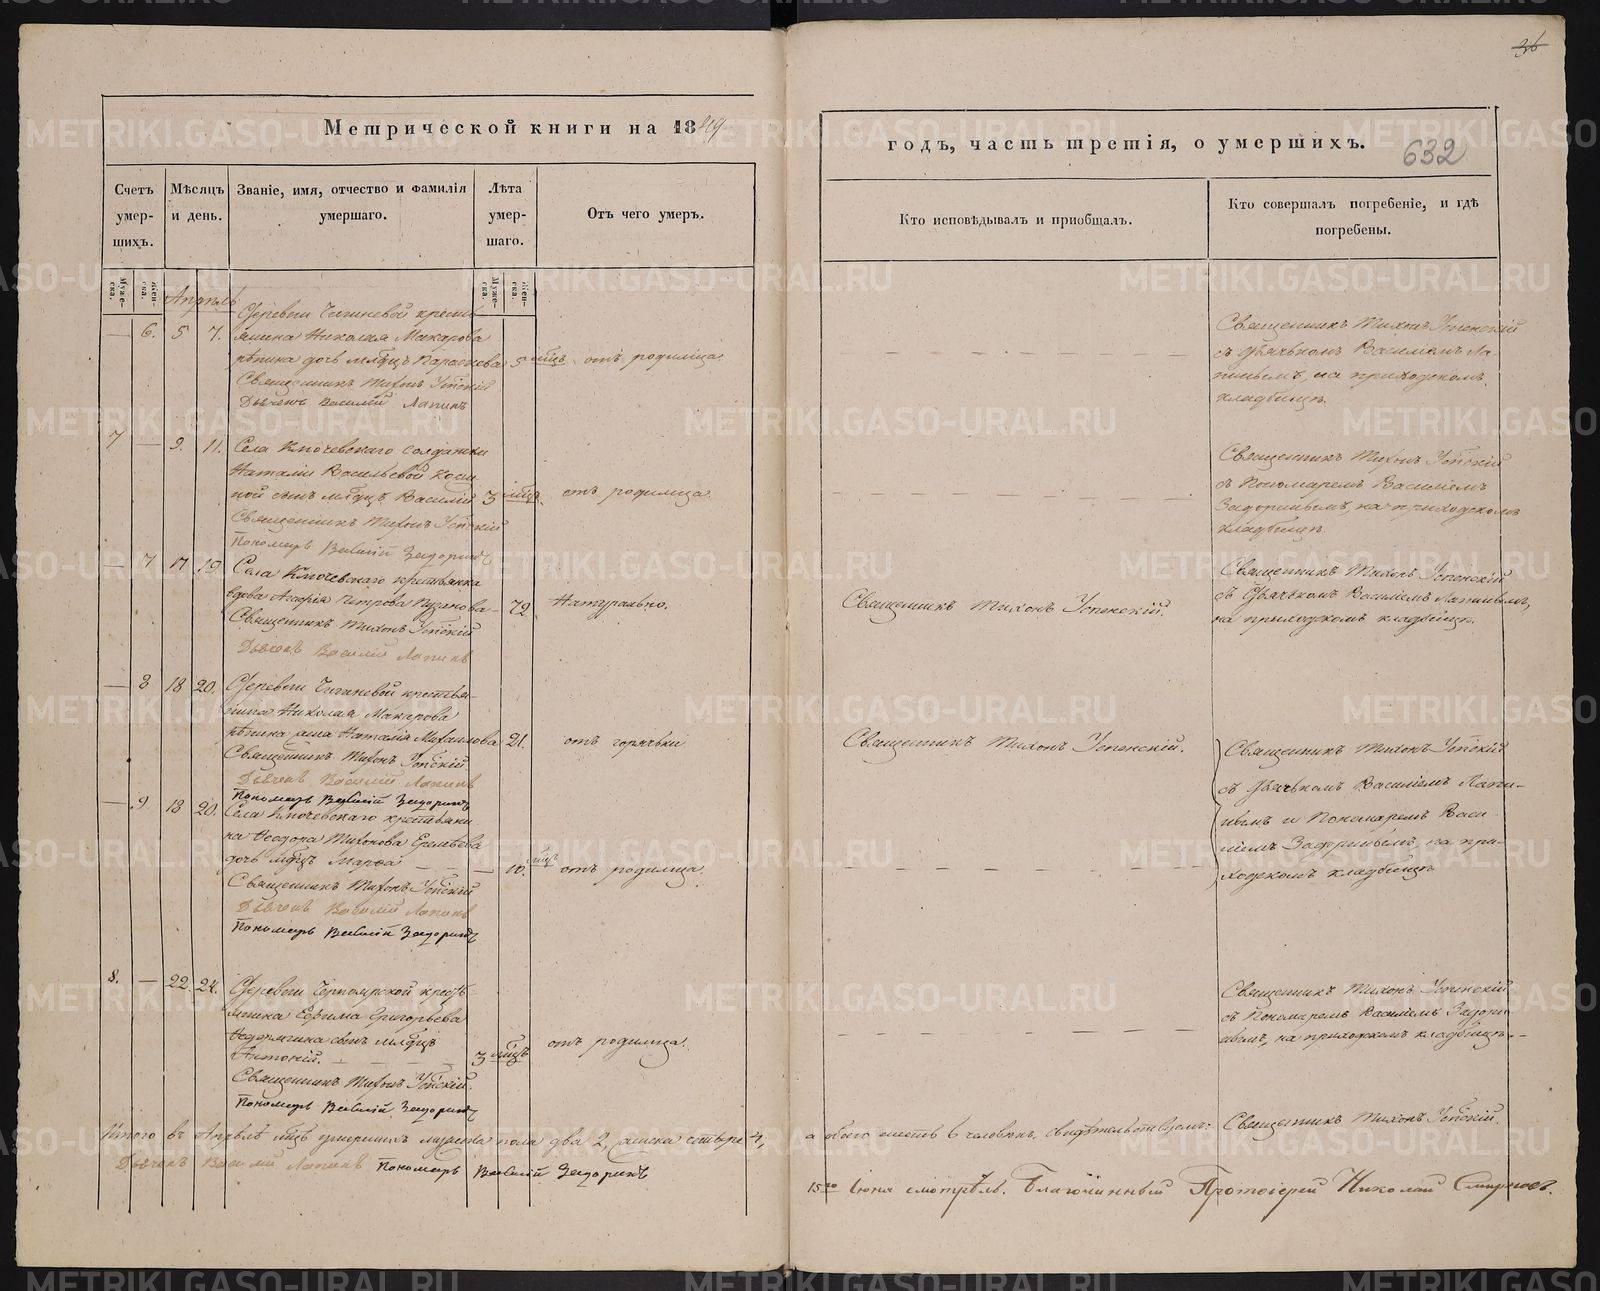 36
632
Метрической книги на 1849
годъ, часть третія, о умершихъ.
Счетъ умер-шихъ.
Мѣсяцъ и день.
Званіе, имя, отчество и фамилія умершаго.
Лѣта умер-шаго.
Отъ чего умеръ.
Кто исповѣдывалъ и приобщалъ.
Кто совершалъ погребеніе, и гдѣ погребены.
Муже-ска.
Жен-ска.
Муже-ска.
Жен-ска.
Апрѣль
— 6. 5 7.
Деревни Чигиневой крестья-
янина Николая Макарова
рѣпина дочь млдцъ Параскева 5 мцъ отъ родимца.
Священникъ Тихонъ Успскій
Дьячекъ Василій Лапинъ
Священникъ Тихонъ Успенскій
съ Дьячькомъ Василіемъ Ла-
пинымъ, на приходскомъ
кладбищѣ.
7 — 9. 11. Села Ключевскаго солдатки
Наталіи Васильевой
сынъ млдцъ Василій 3 мцъ отъ родимца
Священникъ Тихонъ Успскій
Пономарь Василій Задоринъ
Священникъ Тихонъ Успскій
съ Пономаремъ Василіемъ
Задоринымъ, на приходскомъ
кладбищѣ.
— 7 17 19. Села Ключевскаго крестьянка
вдова Петрова — 72. Натурально.
Священникъ Тихонъ Успскій
Дьячекъ Василій Лапинъ
Священникъ Тихонъ Успенскій.
Священникъ Тихонъ Успенскій
съ Дьячькомъ Василіемъ Лапинымъ,
на приходскомъ кладбищѣ.
— 8 18 20. Деревни Чигиневой крестья-
нина Николая Макарова
рѣпина жена Наталія Михаилова 21. отъ горячьки
Священникъ Тихонъ Успскій
Дьячекъ Василій Лапинъ
Пономарь Василій Задоринъ
Священникъ Тихонъ Успенскій.
Священникъ Тихонъ Успскій
съ Дьячькомъ Василіемъ Лапи-
нымъ и Пономаремъ Васи-
ліемъ Задоринымъ, на при-
ходскомъ кладбищѣ
— 9 18 20. Села Ключевскаго крестьяни-
на Ѳеодора Тихонова
дочь млдцъ Марѳа — — 10. мцъ отъ родимца.
Священникъ Тихонъ Успскій
Дьячекъ Василій Лапинъ
Пономарь Василій Задоринъ
8. — 22 24. Деревни Черноярской кресть-
янина Ефима Григорьева
сынъ млдцъ
Антоній. 3 мцъ отъ родимца.
Священникъ Тихонъ Успскій.
Пономарь Василій Задоринъ
Священникъ Тихонъ Успенскій
съ Пономаремъ Василіемъ Задори-
нымъ, на приходскомъ кладбищѣ.
Итого въ Апрѣлѣ мцѣ умершихъ мужеска пола два 2, женска четыре 4,
а обоего шесть 6 человѣкъ, свидѣтельствуемъ: Священникъ Тихонъ Успскій.
Дьячекъ Василій Лапинъ Пономарь Василій Задоринъ
15го Іюня смотрѣлъ. Благочинный Протоіерей Николай Смирновъ.
METRIKI.GASO-URAL.RU